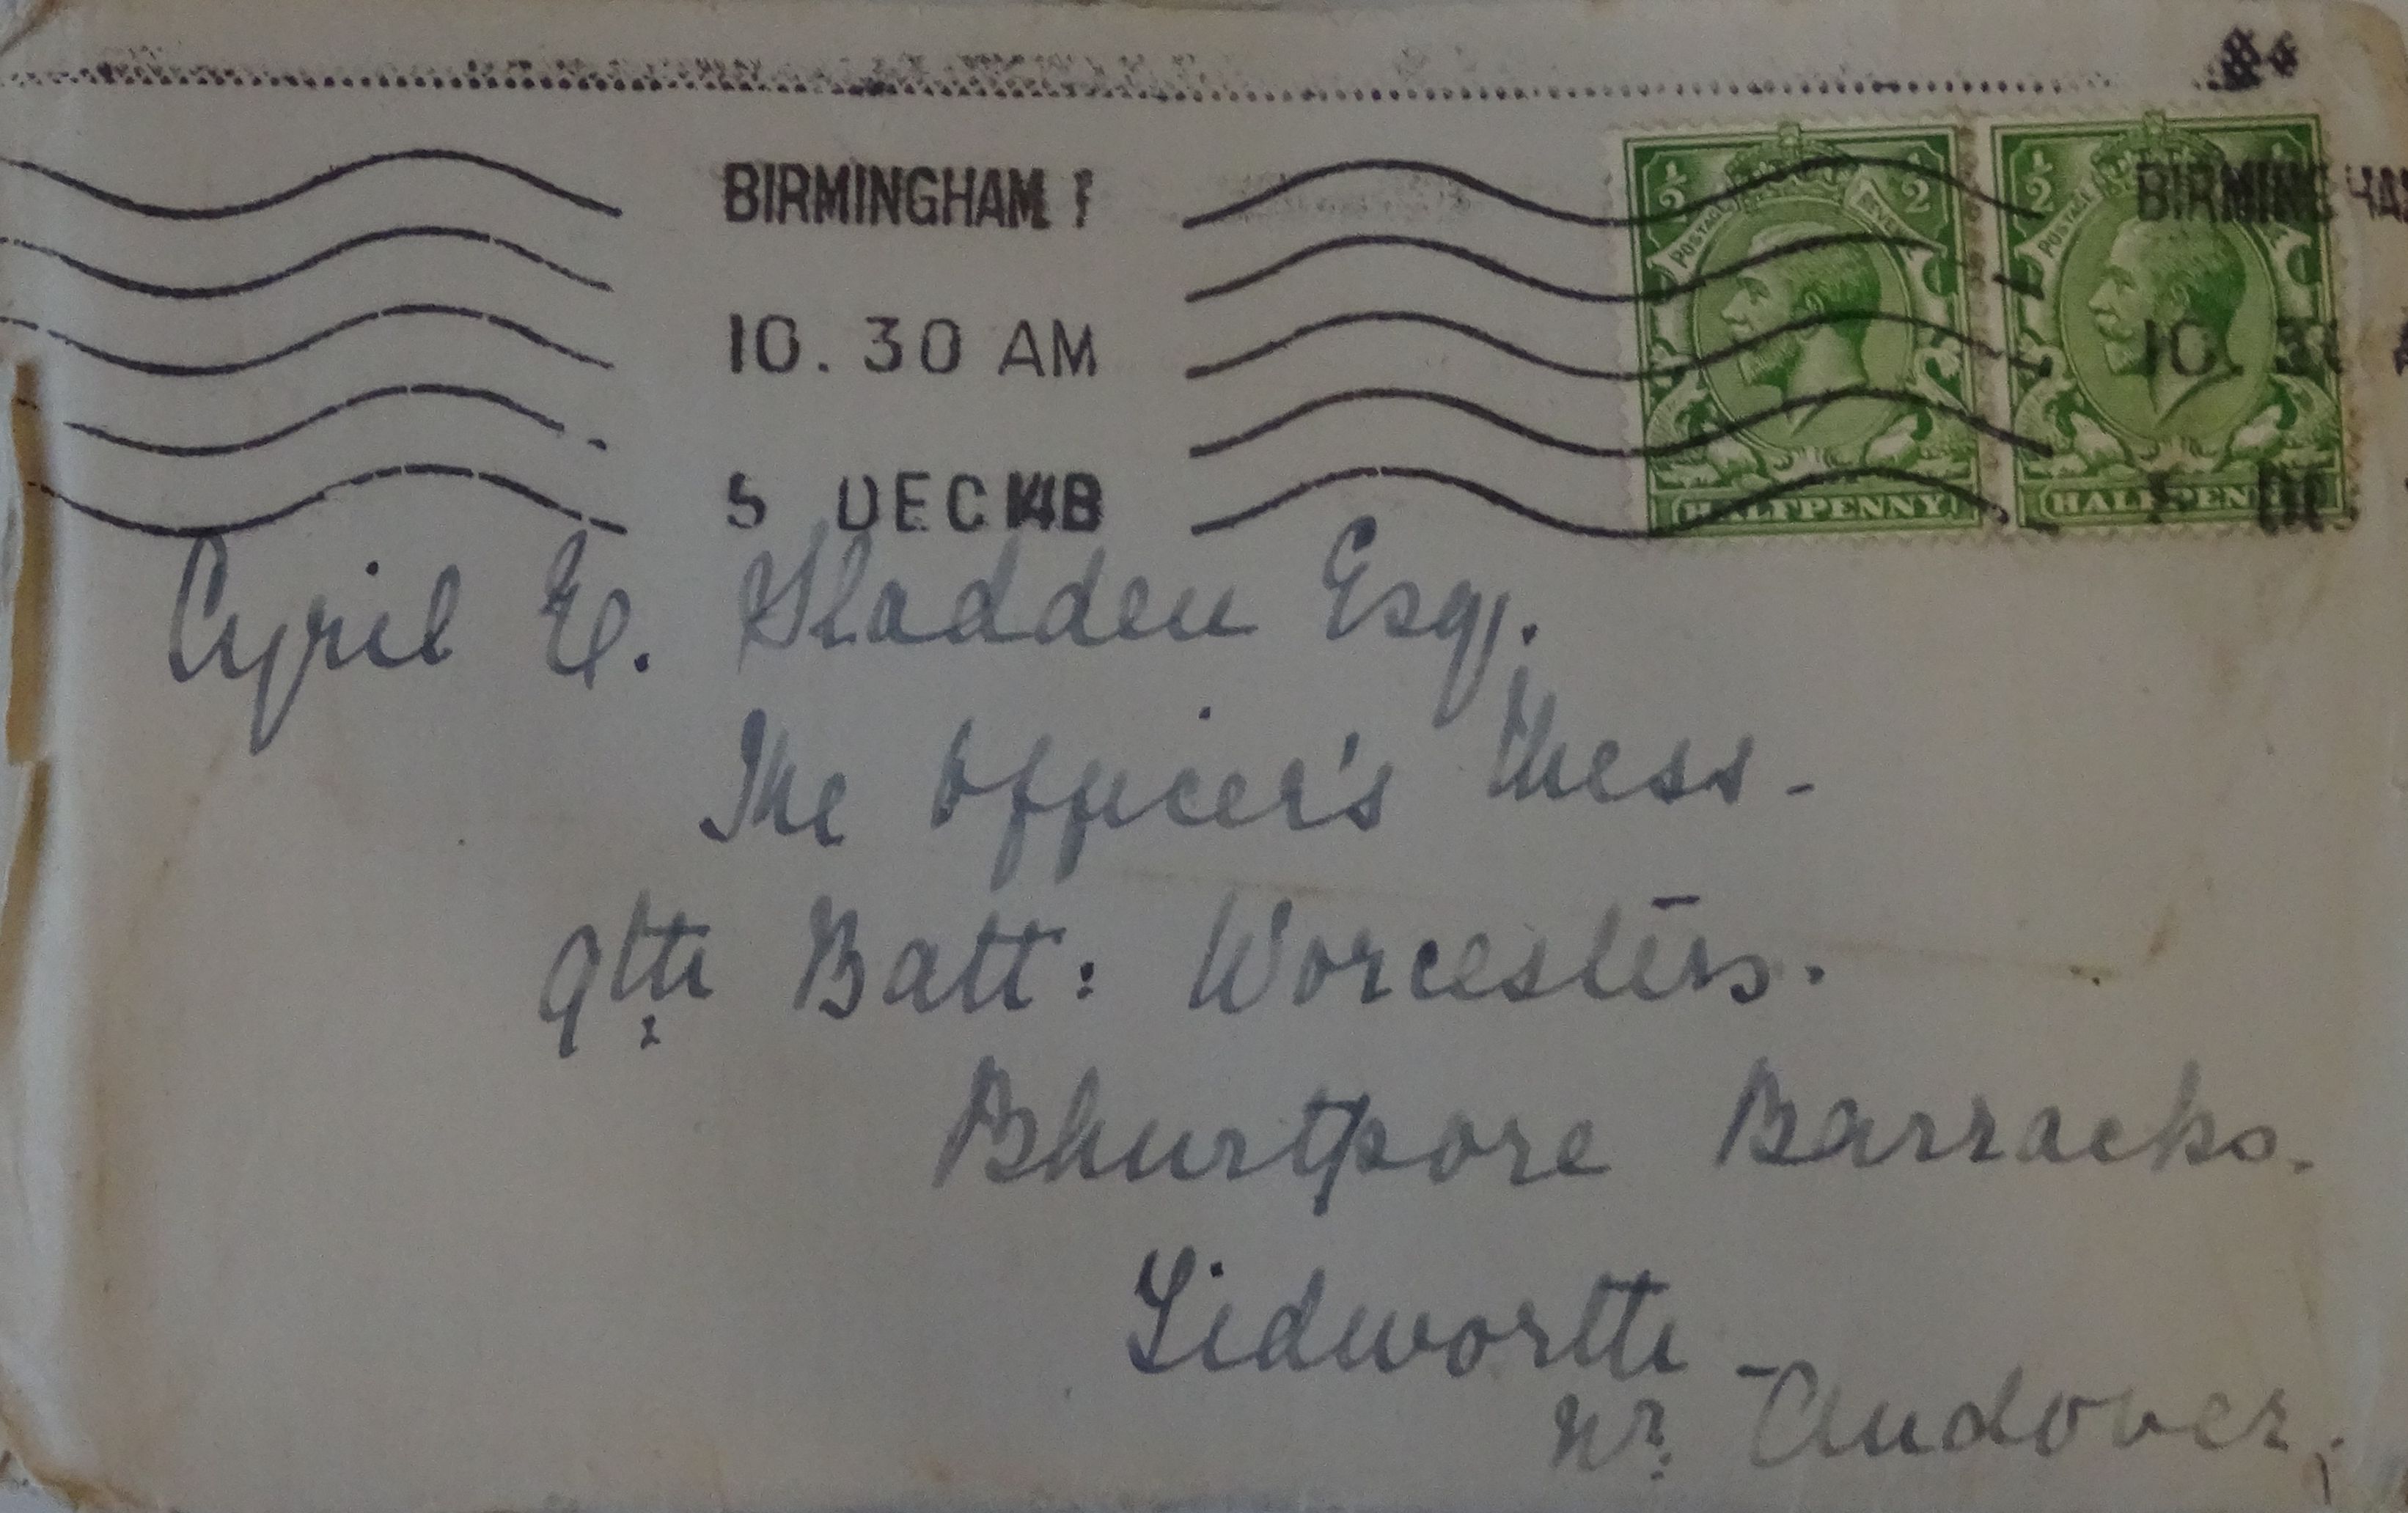 BIRMINGHAM
10.30 AM
5 DEC 14
½ POSTAGE REVENUE ½
HALFPENNY
½ POSTAGE
HALFPENNY
BIRMINGHAM
10.30
DE
Cyril E. Sladden Esq.
The Officer's Mess-
9th Batt: Worcesters.
Bhurtpore Barracks.
Tidworth
Nr. Andover.